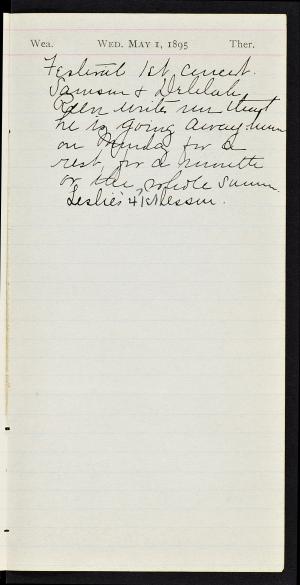 Wea. WED. MAY 1, 1895 Ther.
Festival 1st concert.
Samson & Delilah
writes me that
he is going away
on Monday for a
rest, for a month
or the whole
Leslie's lesson.